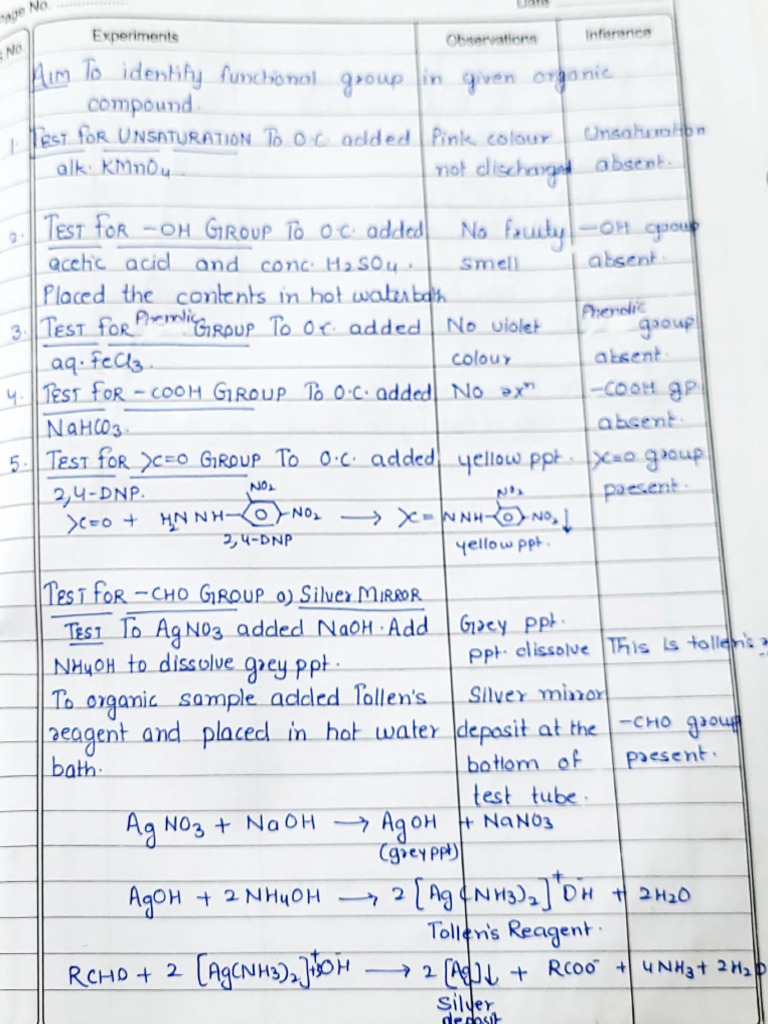 Page No.
Date
No. Experiments Observations Inference
AIM To identify functional group in given organic
compound.
1. TEST FOR UNSATURATION To O.C added Pink colour Unsaturation
alk. KMnO4. not discharged absent.
2. TEST FOR -OH GROUP To O.C. added No fruity -OH group
acetic acid and conc. H2SO4. smell absent.
Placed the contents in hot waterbath
3. TEST FOR Phenolic GROUP To O.C. added No violet Phenolic group
aq. FeCl3. colour absent.
4. TEST FOR -COOH GROUP To O.C. added No rxn -COOH gp
NaHCO3. absent.
5. TEST FOR >C=O GROUP To O.C. added yellow ppt. >C=O group
2,4-DNP. present.
NO2 NO2
>C=O + H2N NH- -NO2 → >C=NNH- -NO2↓
2,4-DNP yellow ppt.
TEST FOR -CHO GROUP a) SILVER MIRROR
TEST To AgNO3 added NaOH. Add Grey ppt.
NH4OH to dissolve grey ppt. ppt. dissolve This is tollen's
To organic sample added Tollen's Silver mirror
reagent and placed in hot water deposit at the -CHO group
bath. bottom of present.
test tube.
AgNO3 + NaOH → AgOH + NaNO3
(grey ppt)
AgOH + 2NH4OH → 2[Ag(NH3)2]+OH- + 2H2O
Tollen's Reagent.
RCHO + 2 [Ag(NH3)2]+ + 3OH- → 2[Ag]↓ + RCOO- + 4NH3 + 2H2O
Silver
deposit